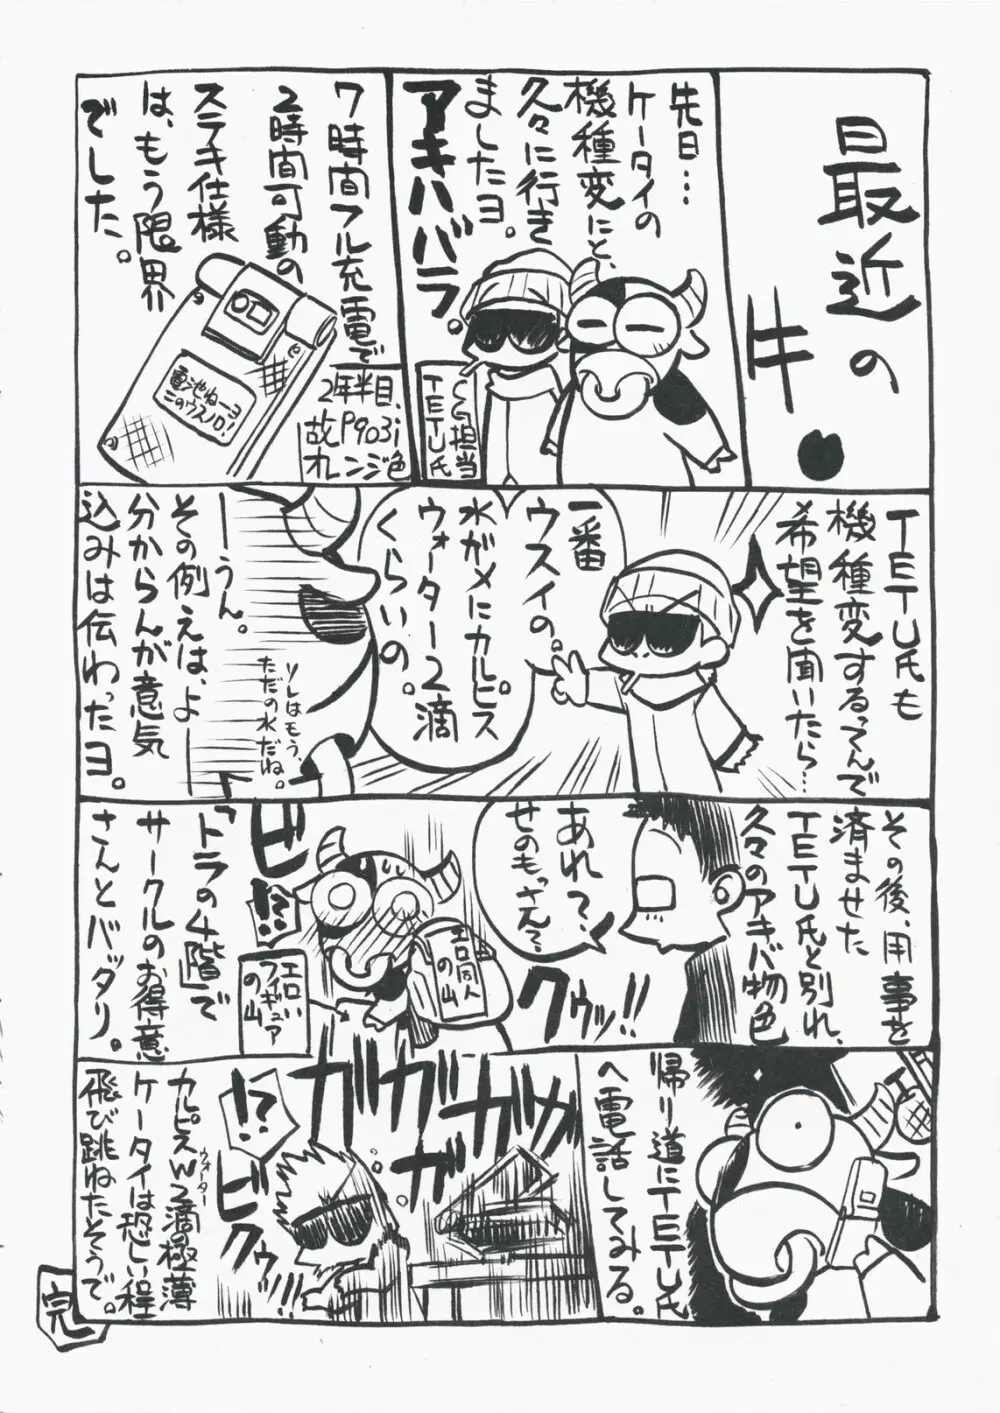 最近の
牛.
先日…
ケータイの
機種変にと、
久々に行き
ましたヨ。
アキハバラ。
CG担当
TETU氏
7時間フル充電で
2時間可動の
ステキ仕様
は、もう限界
でした。
2年半目、
故P903i
オレンジ色
電池ねーヨ
このウスノロ!
TETU氏も
機種変するってんで
希望を聞いたら…
一番
ウスイの。
水ガメにカルピス
ウォーター2滴
くらいの。
ーうん。
その例えは、よー
分からんが意気
込みは伝わったヨ。
ソレはもう、
ただの水だね。
その後、用事を
済ませた
TETU氏と別れ、
久々のアキバ物色
あれ?
せのもっさん?
クウッ!!
ビ
!?
エロ同人
の山
エロい
フィギュア
の山
「トラの4階」で
サークルのお得意
さんとバッタリ。
帰り道にTETU氏
へ電話してみる。
ガガガガガ
!?
ビクゥッ!!
カルピスW2滴の極薄
ウォーター
ケータイは恐しい程
飛び跳ねたそうで。
完